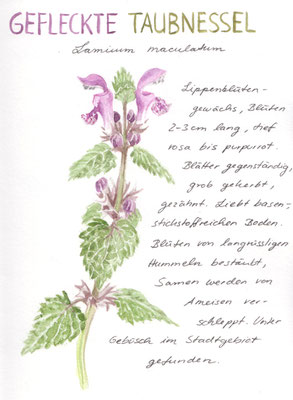 GEFLECKTE TAUBNESSEL
Lamium maculatum
Lippenblüten-
gewächs, Blüten
2-3cm lang, tief
rosa bis purpurrot.
Blätter gegenständig,
grob gekerbt,
gezähnt. Liebt basen-,
stickstoffreichen Boden.
Blüten von langrüssligen
Hummeln bestäubt,
Samen werden von
Ameisen ver-
schleppt. Unter
Gebüsch im Stadtgebiet
gefunden.